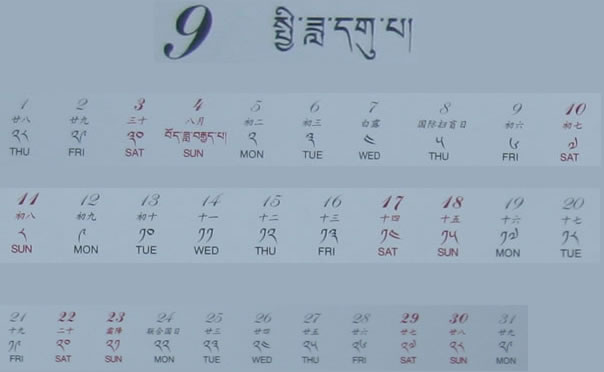 9 སྤྱི་ཟླ་དགུ་པ།
1 2 3 4 5 6 7 8 9 10
廿八 廿九 三十 八月 初二 初三 白露 国际扫盲日 初六 初七
༢༨ ༢༩ ༣༠ བོད་ཟླ་བརྒྱད་པ། ༢ ༣ ༤ ༥ ༦ ༧
THU FRI SAT SUN MON TUE WED THU FRI SAT
11 12 13 14 15 16 17 18 19 20
初八 初九 初十 十一 十二 十三 十四 十五 十六 十七
༨ ༩ ༡༠ ༡༡ ༡༢ ༡༣ ༡༤ ༡༥ ༡༧ ༡༨
SUN MON TUE WED THU FRI SAT SUN MON TUE
21 22 23 24 25 26 27 28 29 30 31
十九 二十 霜降 联合国日 廿三 廿四 廿五 廿六 廿七 廿八 廿九
༡༩ ༢༠ ༢༡ ༢༢ ༢༣ ༢༤ ༢༥ ༢༦ ༢༧ ༢༨ ༢༩
FRI SAT SUN MON TUE WED THU FRI SAT SUN MON